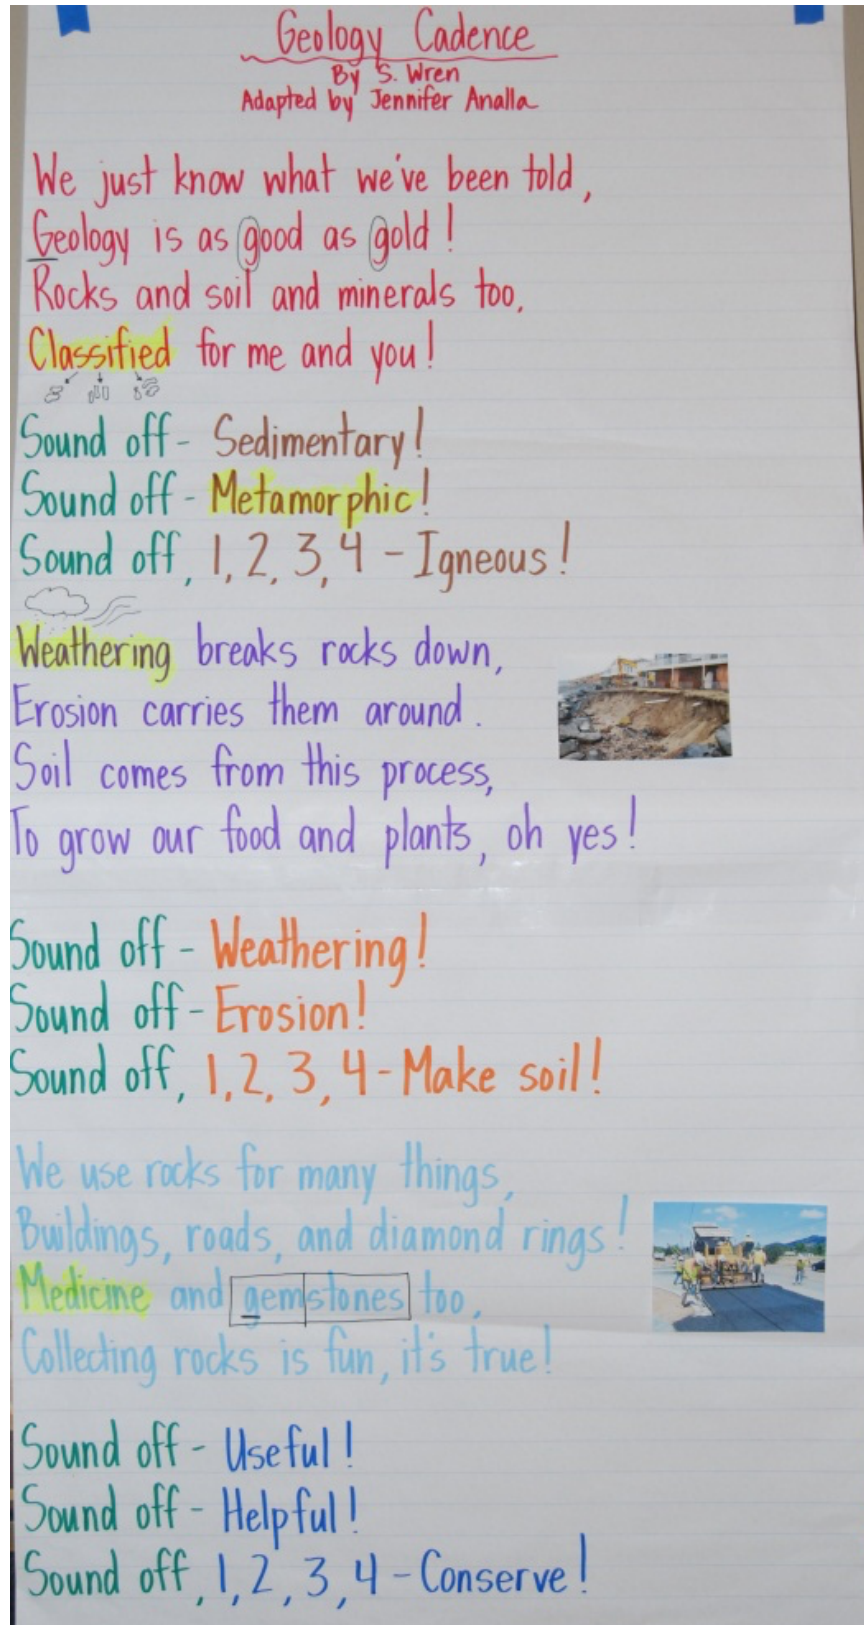 Geology Cadence
By S. Wren
Adapted by Jennifer Analla
We just know what we've been told,
Geology is as good as gold!
Rocks and soil and minerals too,
Classified for me and you!
Sound off - Sedimentary!
Sound off - Metamorphic!
Sound off, 1, 2, 3, 4 - Igneous!
Weathering breaks rocks down,
Erosion carries them around.
Soil comes from this process,
To grow our food and plants, oh yes!
Sound off - Weathering!
Sound off - Erosion!
Sound off, 1, 2, 3, 4 - Make soil!
We use rocks for many things,
Buildings, roads, and diamond rings!
Medicine and gemstones too,
Collecting rocks is fun, it's true!
Sound off - Useful!
Sound off - Helpful!
Sound off, 1, 2, 3, 4 - Conserve!